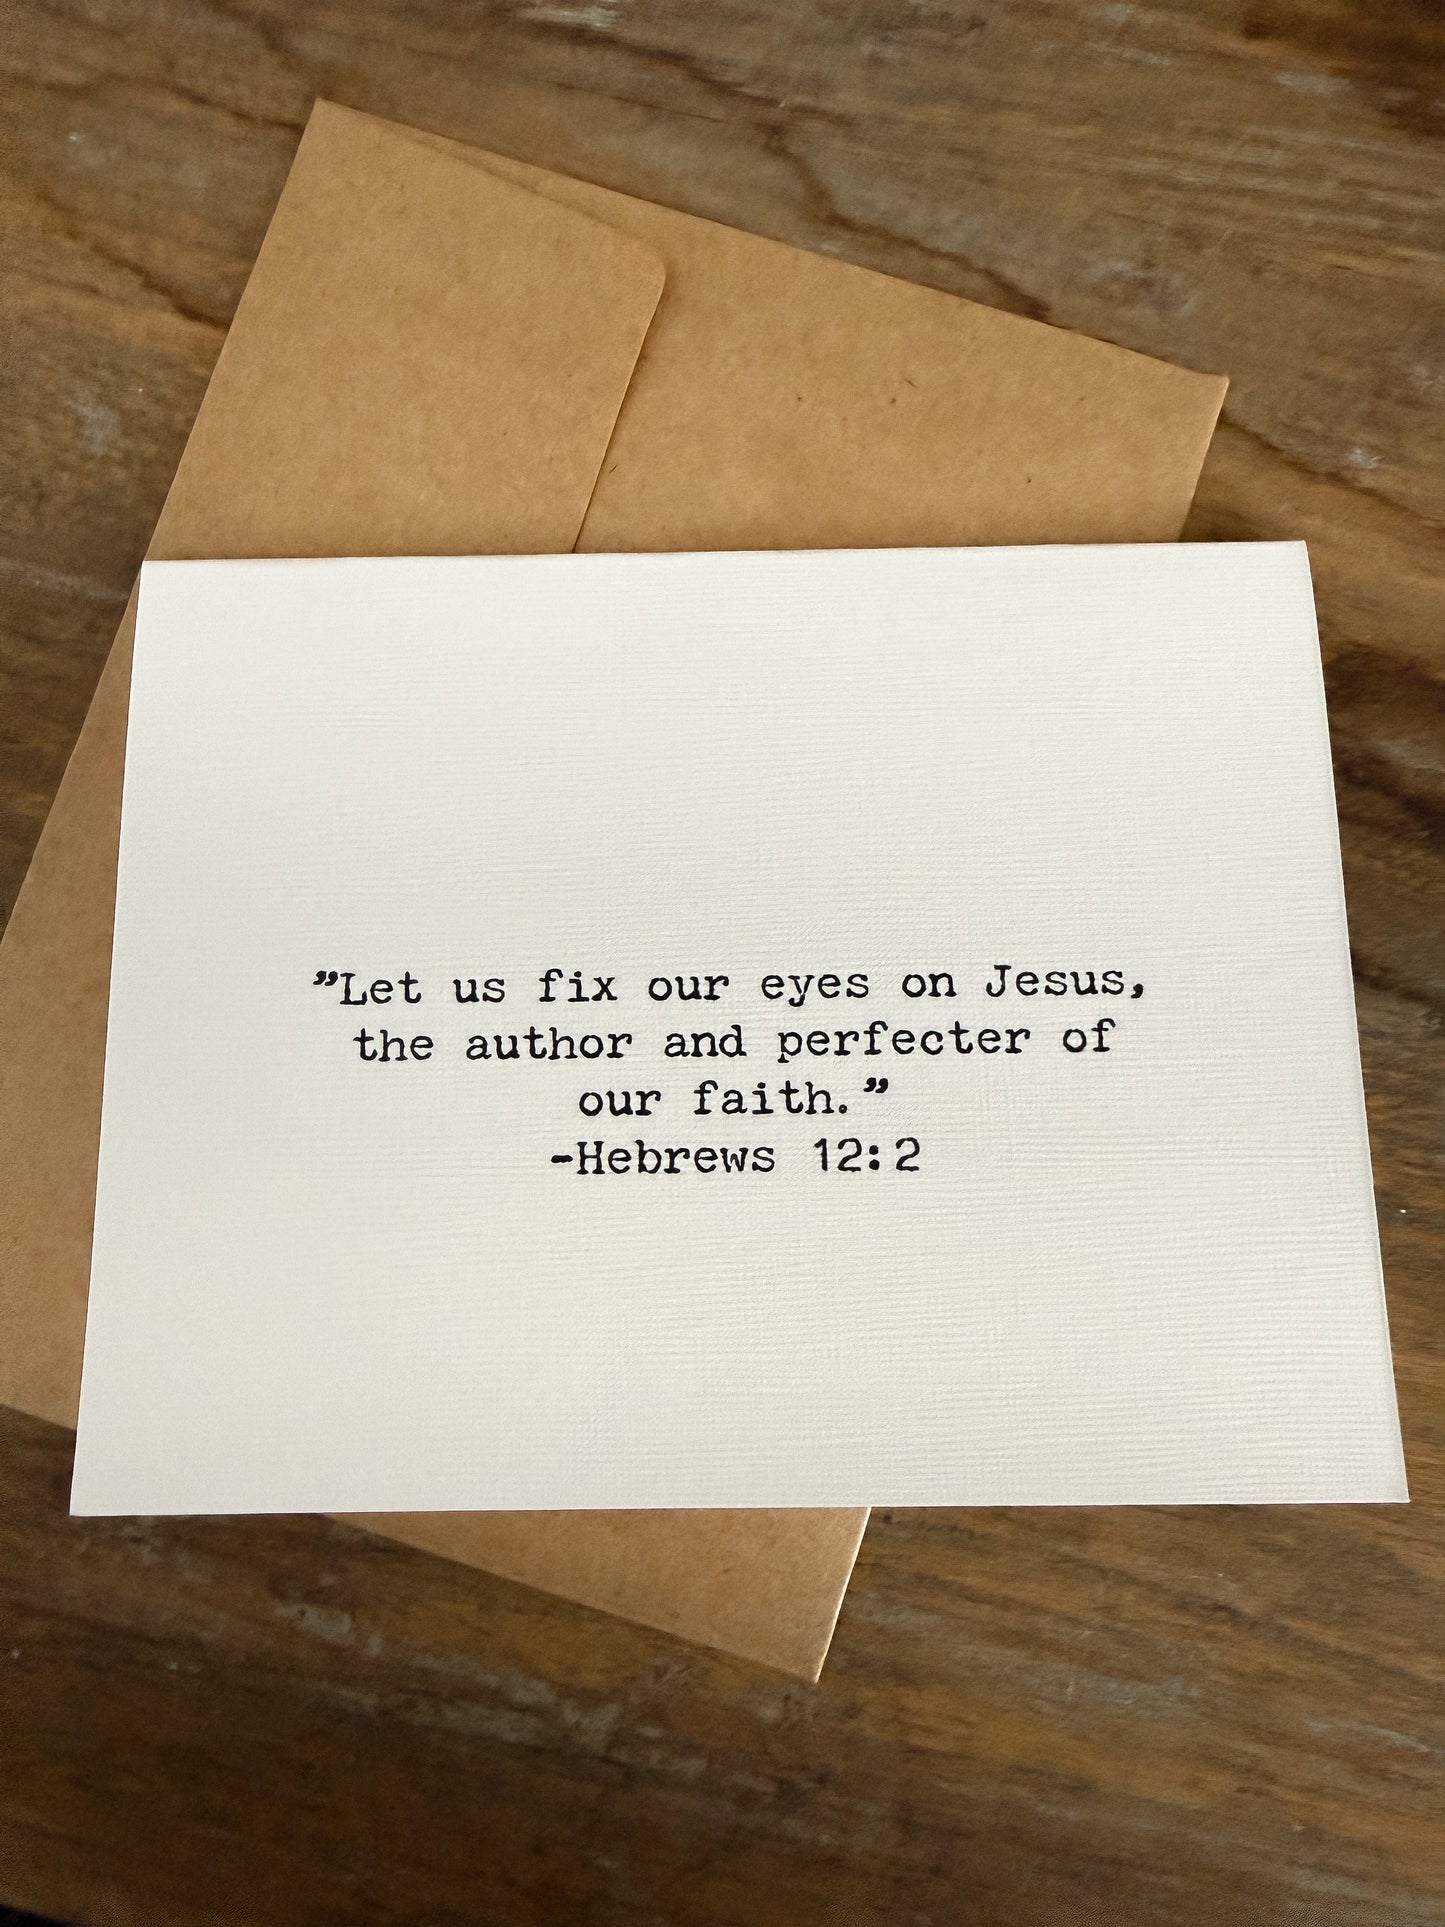 ”Let us fix our eyes on Jesus,
the author and perfecter of
our faith.”
-Hebrews 12:2